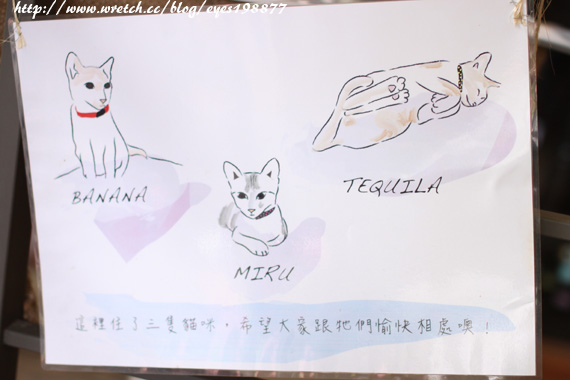 http://www.wretch.cc/blog/eyes198877
BANANA
TEQUILA
MIRU
這裡住了三隻貓咪，希望大家跟牠們愉快相處噢！